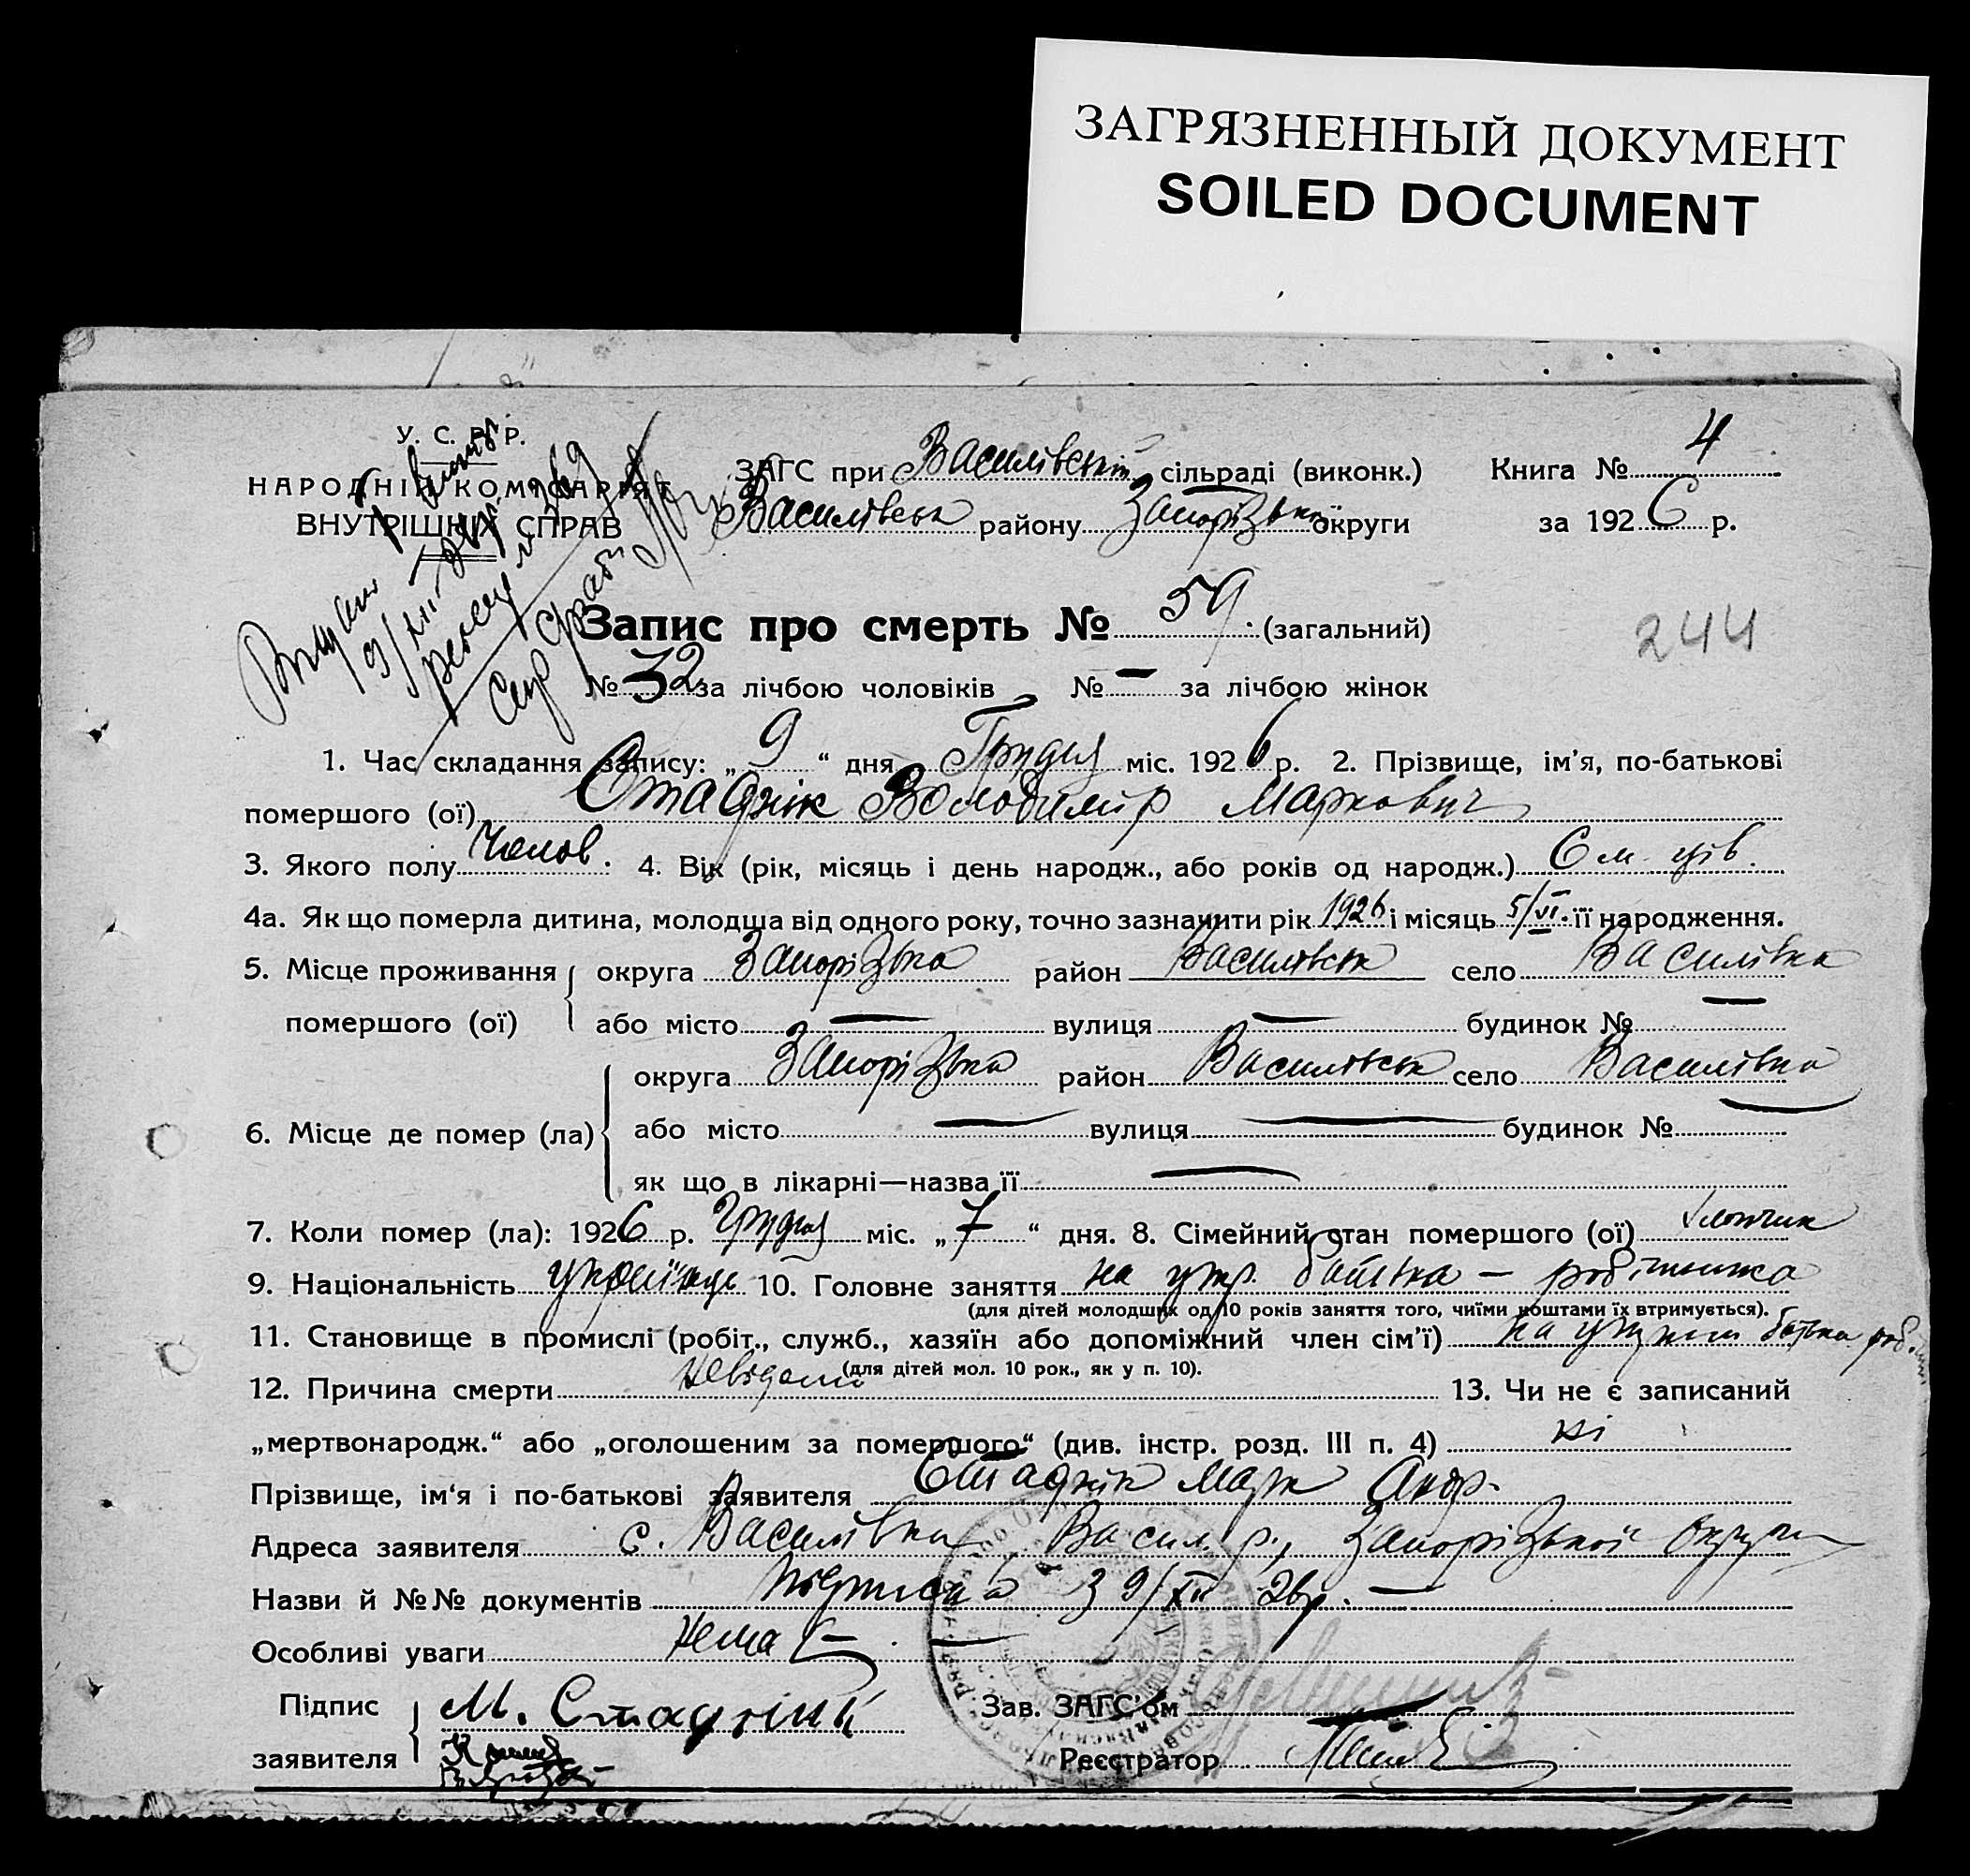 ЗАГРЯЗНЕННЫЙ ДОКУМЕНТ
SOILED DOCUMENT
У. С. Р. Р.
НАРОДНІЙ КОМІСАРІЯТ
ВНУТРІШНІХ СПРАВ
ЗАГС при Василівській сільраді (виконк.) Книга № 4
Василівськ району Запорізької округи за 1926 р.
Запис про смерть № 59. (загальний)
244
№ 32 за лічбою чоловіків № — за лічбою жінок
1. Час складання запису: „ 9 “ дня Грудня міс. 1926 р. 2. Прізвище, ім'я, по-батькові
помершого (ої) Стаднік Володимир Маркович
3. Якого полу Чолов. 4. Вік (рік, місяць і день народж., або років од народж.) 6 м
4а. Як що померла дитина, молодша від одного року, точно зазначити рік 1926 і місяць 5/VI. її народження.
5. Місце проживання округа Запорізька район Василівськ село Василівка
помершого (ої) або місто — вулиця — будинок № —
округа Запорізька район Василівськ село Василівка
6. Місце де помер (ла) або місто — вулиця — будинок № —
як що в лікарні—назва її —
7. Коли помер (ла): 1926 р. Грудня міс. „ 7 “ дня. 8. Сімейний стан помершого (ої) хлопчик
9. Національність українце 10. Головне заняття на утр. батька — робітника
(для дітей молодших од 10 років заняття того, чиїми коштами їх втримується).
11. Становище в промислі (робіт., служб., хазяїн або допоміжний член сім'ї) на батька
(для дітей мол. 10 рок., як у п. 10).
12. Причина смерти невідома 13. Чи не є записаний
„мертвонародж.“ або „оголошеним за помершого“ (див. інстр. розд. III п. 4) ні
Прізвище, ім'я і по-батькові заявителя Стаднік Марк Андр.
Адреса заявителя с. Василівка, Васил. р., Запорізької округи
Назви й №№ документів підписка з 9/XII 26р. —
Особливі уваги Нема —
Підпис М. Стадник Зав. ЗАГС'ом
заявителя Реєстратор